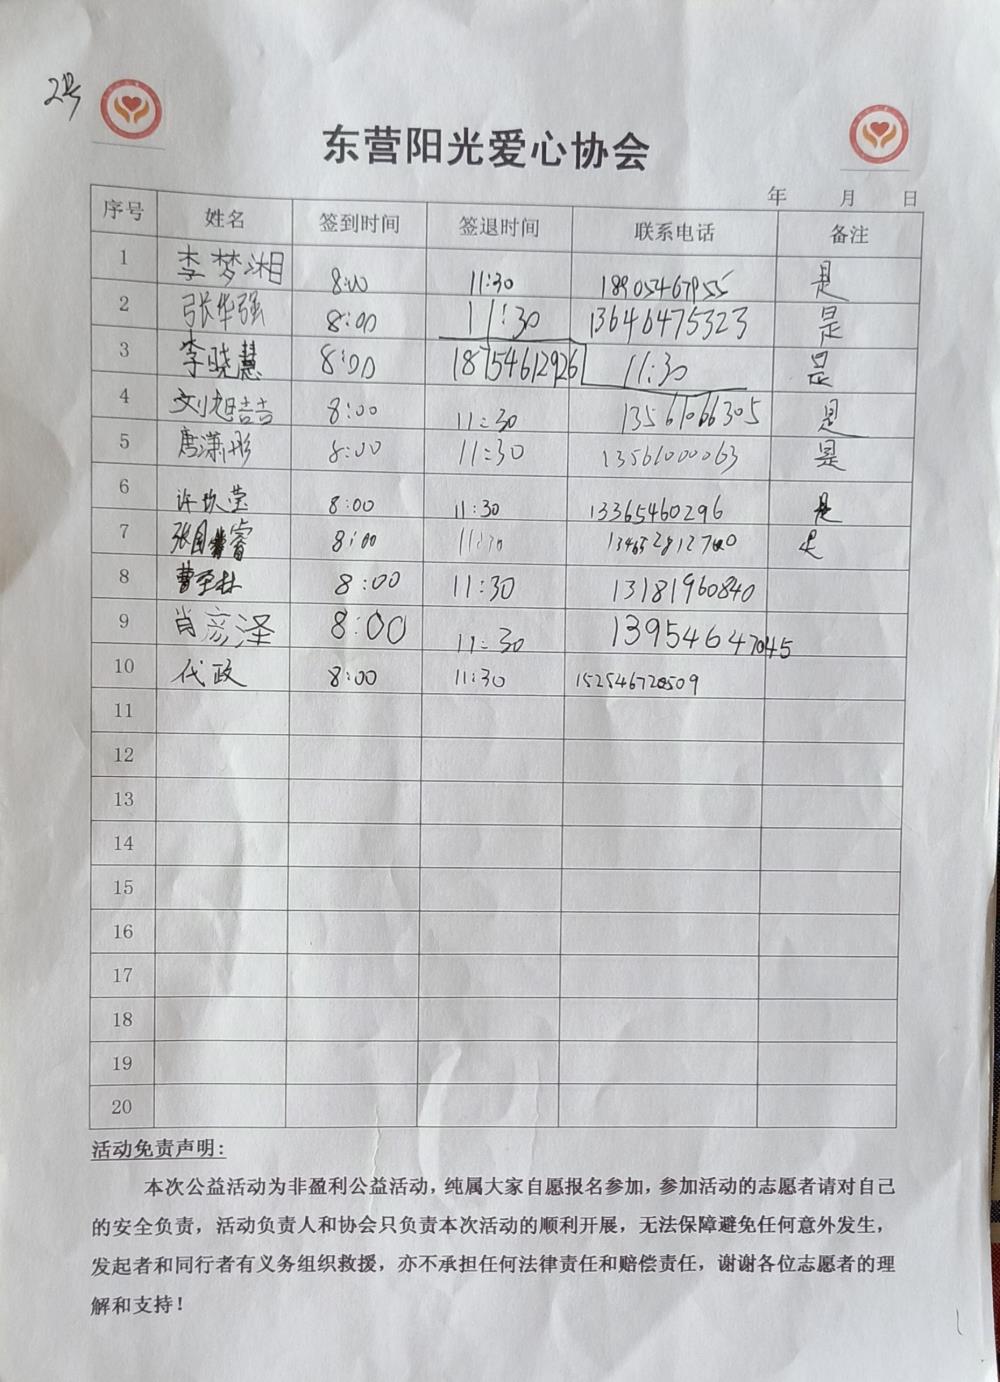 2号
东营阳光爱心协会
年 月 日
序号 姓名 签到时间 签退时间 联系电话 备注
1 李梦湘 8:00 11:30 18905467955 是
2 张华强 8:00 11:30 13646475323 是
3 李晓慧 8:00 18754612926 11:30 是
4 刘旭喆 8:00 11:30 13561066305 是
5 唐潇彤 8:00 11:30 13561000063 是
6 许玖莹 8:00 11:30 13365460296 是
7 张国睿 8:00 11:30 是
8 曹至林 8:00 11:30 13181960840
9 肖彦泽 8:00 11:30 13954647045
10 代政 8:00 11:30
11
12
13
14
15
16
17
18
19
20
活动免责声明:
本次公益活动为非盈利公益活动，纯属大家自愿报名参加，参加活动的志愿者请对自己
的安全负责，活动负责人和协会只负责本次活动的顺利开展，无法保障避免任何意外发生，
发起者和同行者有义务组织救援，亦不承担任何法律责任和赔偿责任，谢谢各位志愿者的理
解和支持！